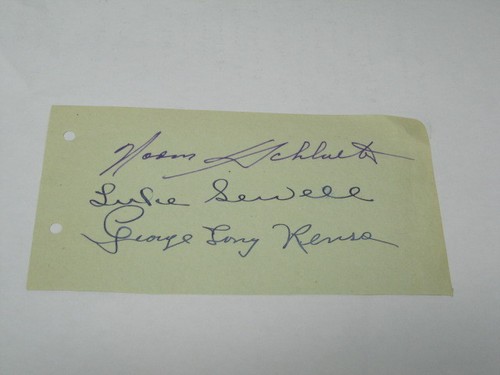 Norm Schlueter
Luke Sewell
George Tony Rensa